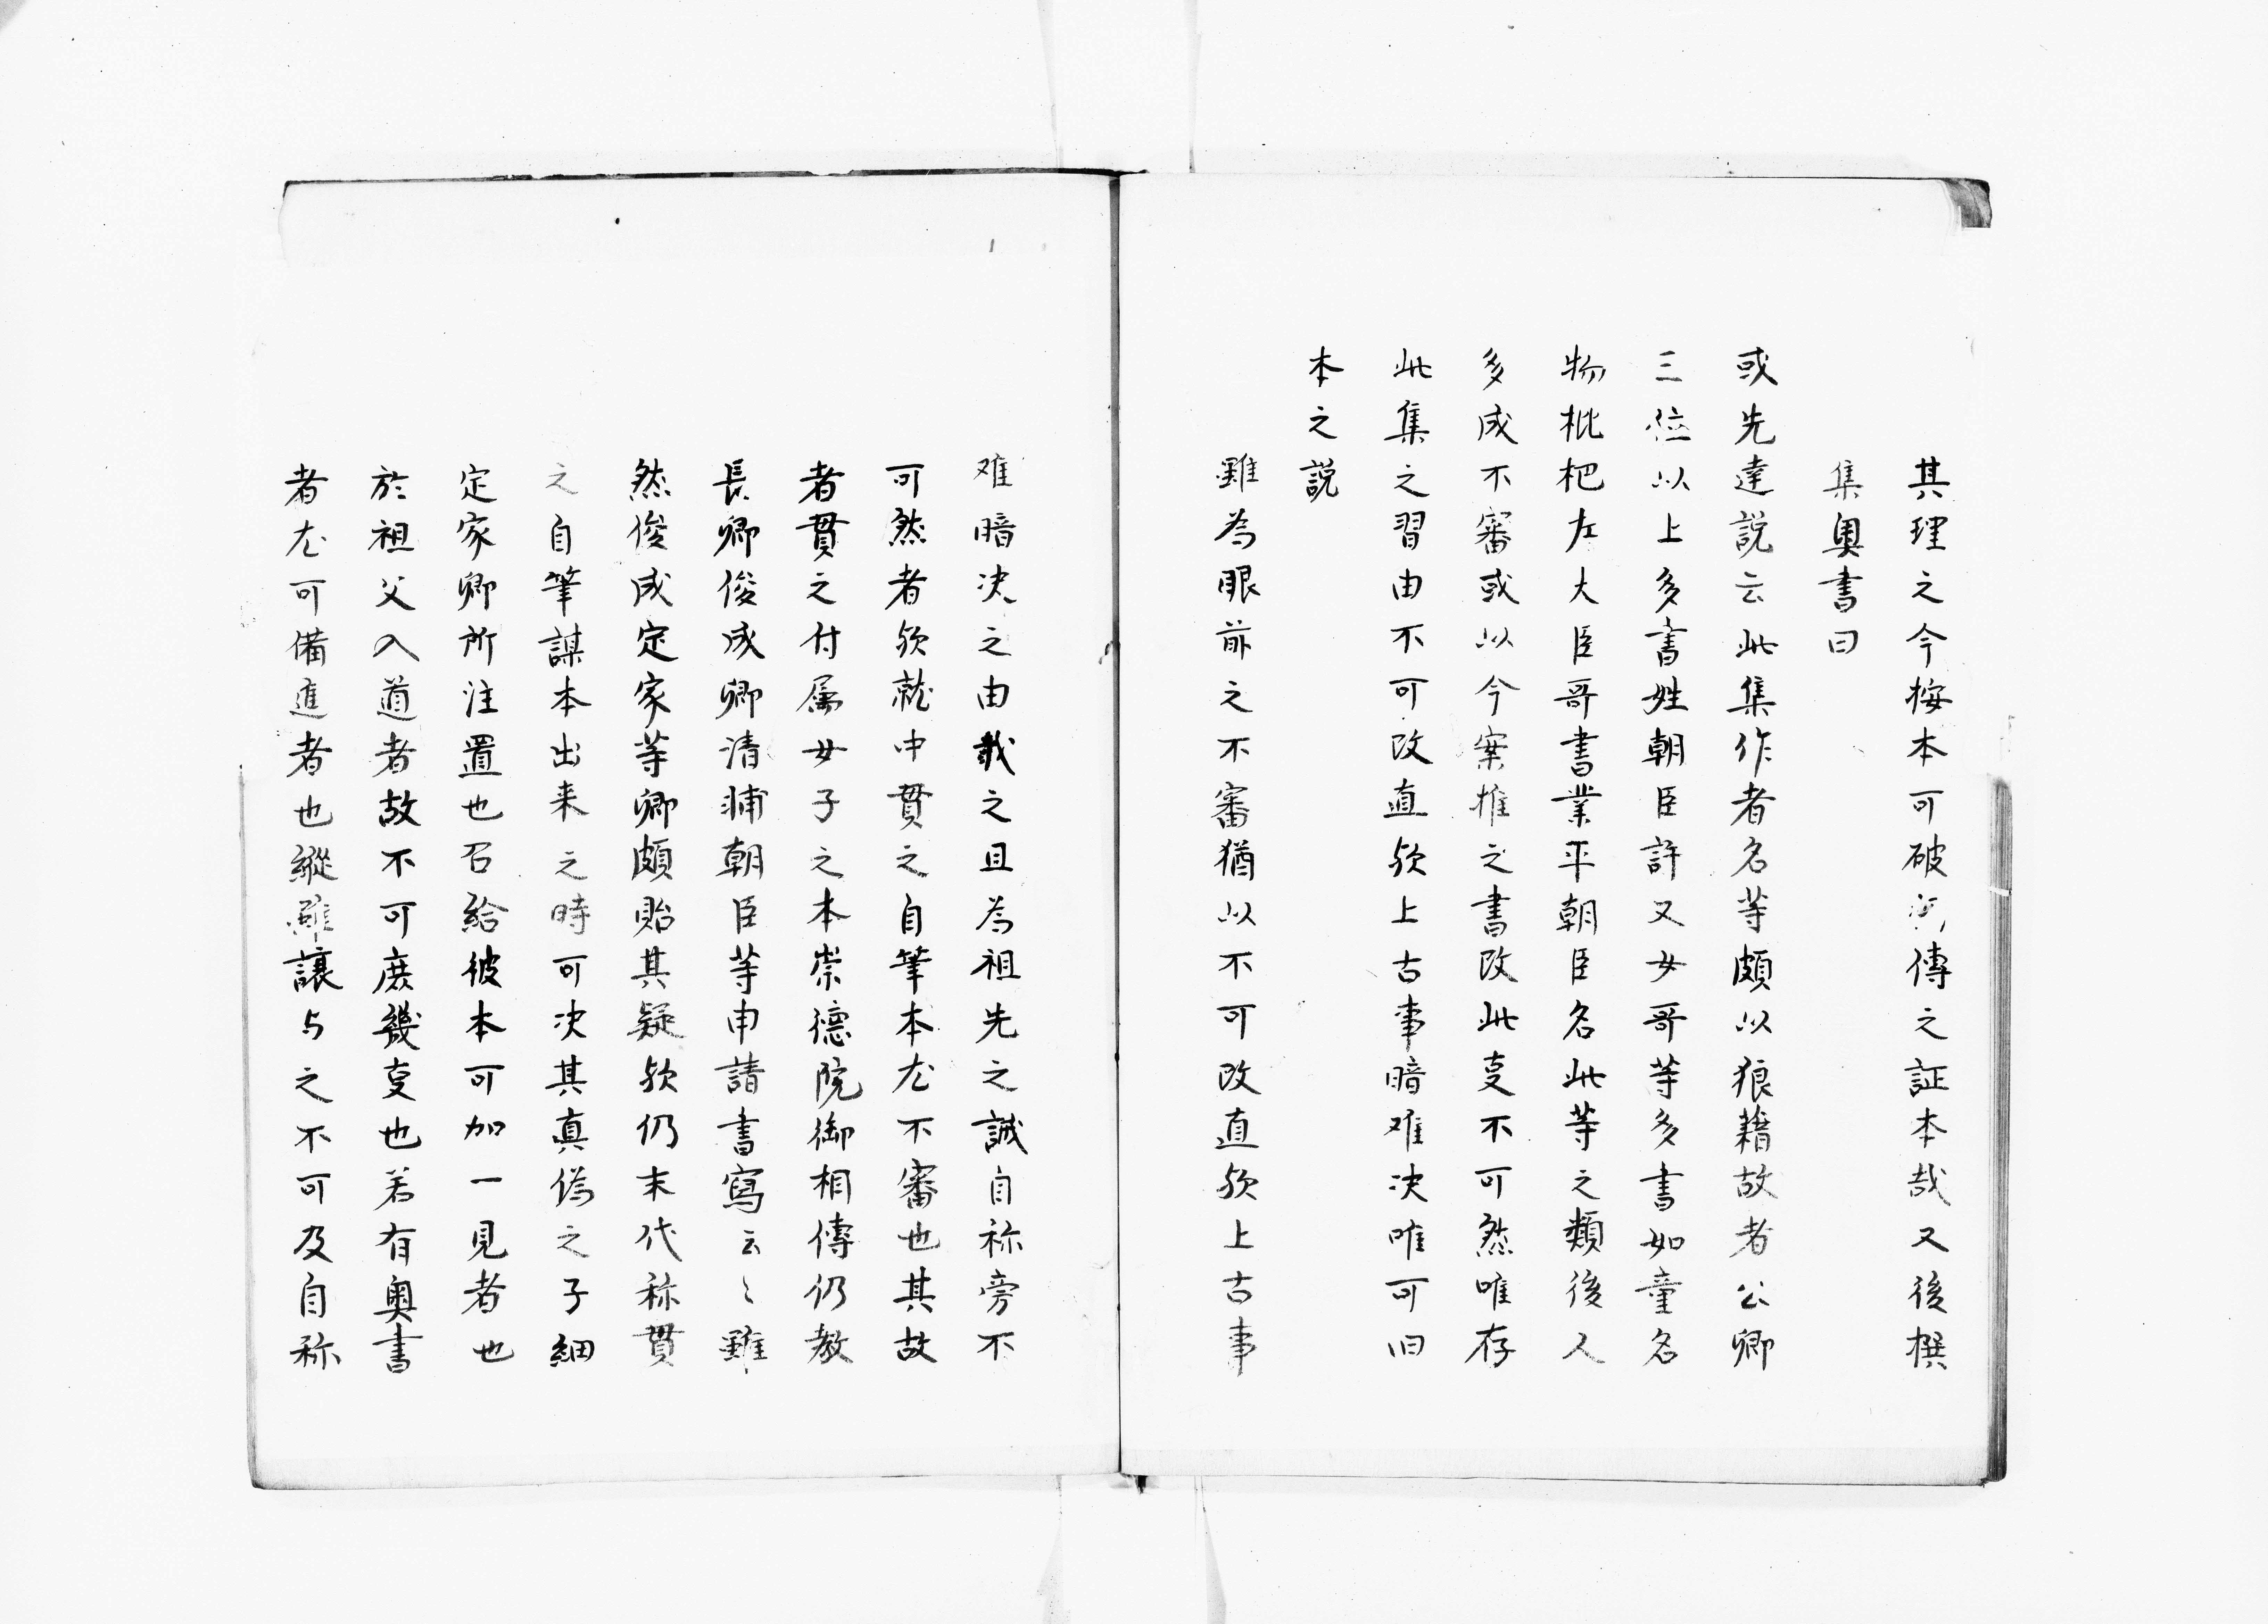 其理之今按本可破代々傳之証本哉又後撰
集奥書曰
或先達説云此集作者名等頗以狼藉故者公卿
三位以上多書姓朝臣許又女哥等多書如童名
物枇杷左大臣哥書業平朝臣名此等之類後人
多成不審或以今案推之書改此㕝不可然唯存
此集之習由不可改直欤上古事暗难决唯可旧
本之説
雖為眼前之不審猶以不可改直欤上古事
难暗决之由載之且為祖先之誡自称旁不
可然者欤就中貫之自筆本尤不審也其故
者貫之付属女子之本崇德院御相傳仍教
長卿俊成卿清輔朝臣等申請書寫云々雖
然俊成定家等卿頗貽其疑欤仍末代称貫
之自筆謀本出来之時可决其真偽之子細
定家卿所注置也召給彼本可加一見者也
於祖父入道者故不可庶幾㕝也若有奥書
者尤可備進者也縦雖讓与之不可及自称